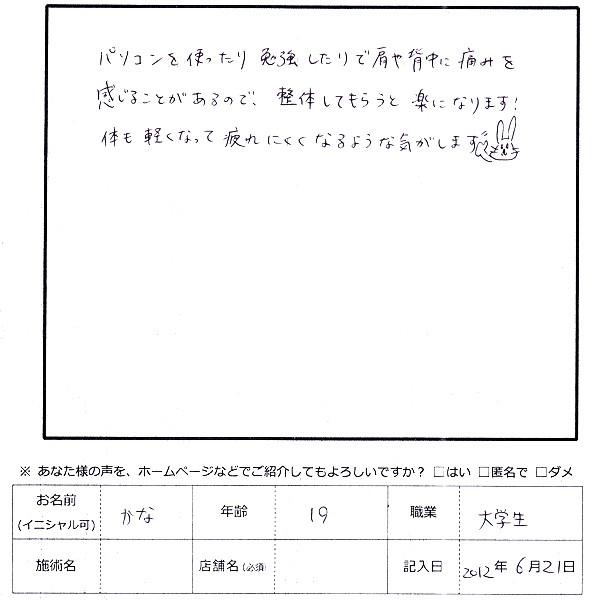 パソコンを使ったり勉強したりで肩や背中に痛みを
感じることがあるので、整体してもらうと楽になります!
体も軽くなって疲れにくくなるような気がします
※ あなた様の声を、ホームページなどでご紹介してもよろしいですか? □はい □匿名で □ダメ
お名前(イニシャル可) かな 年齢 19 職業 大学生
施術名 店舗名(必須) 記入日 2012年6月21日